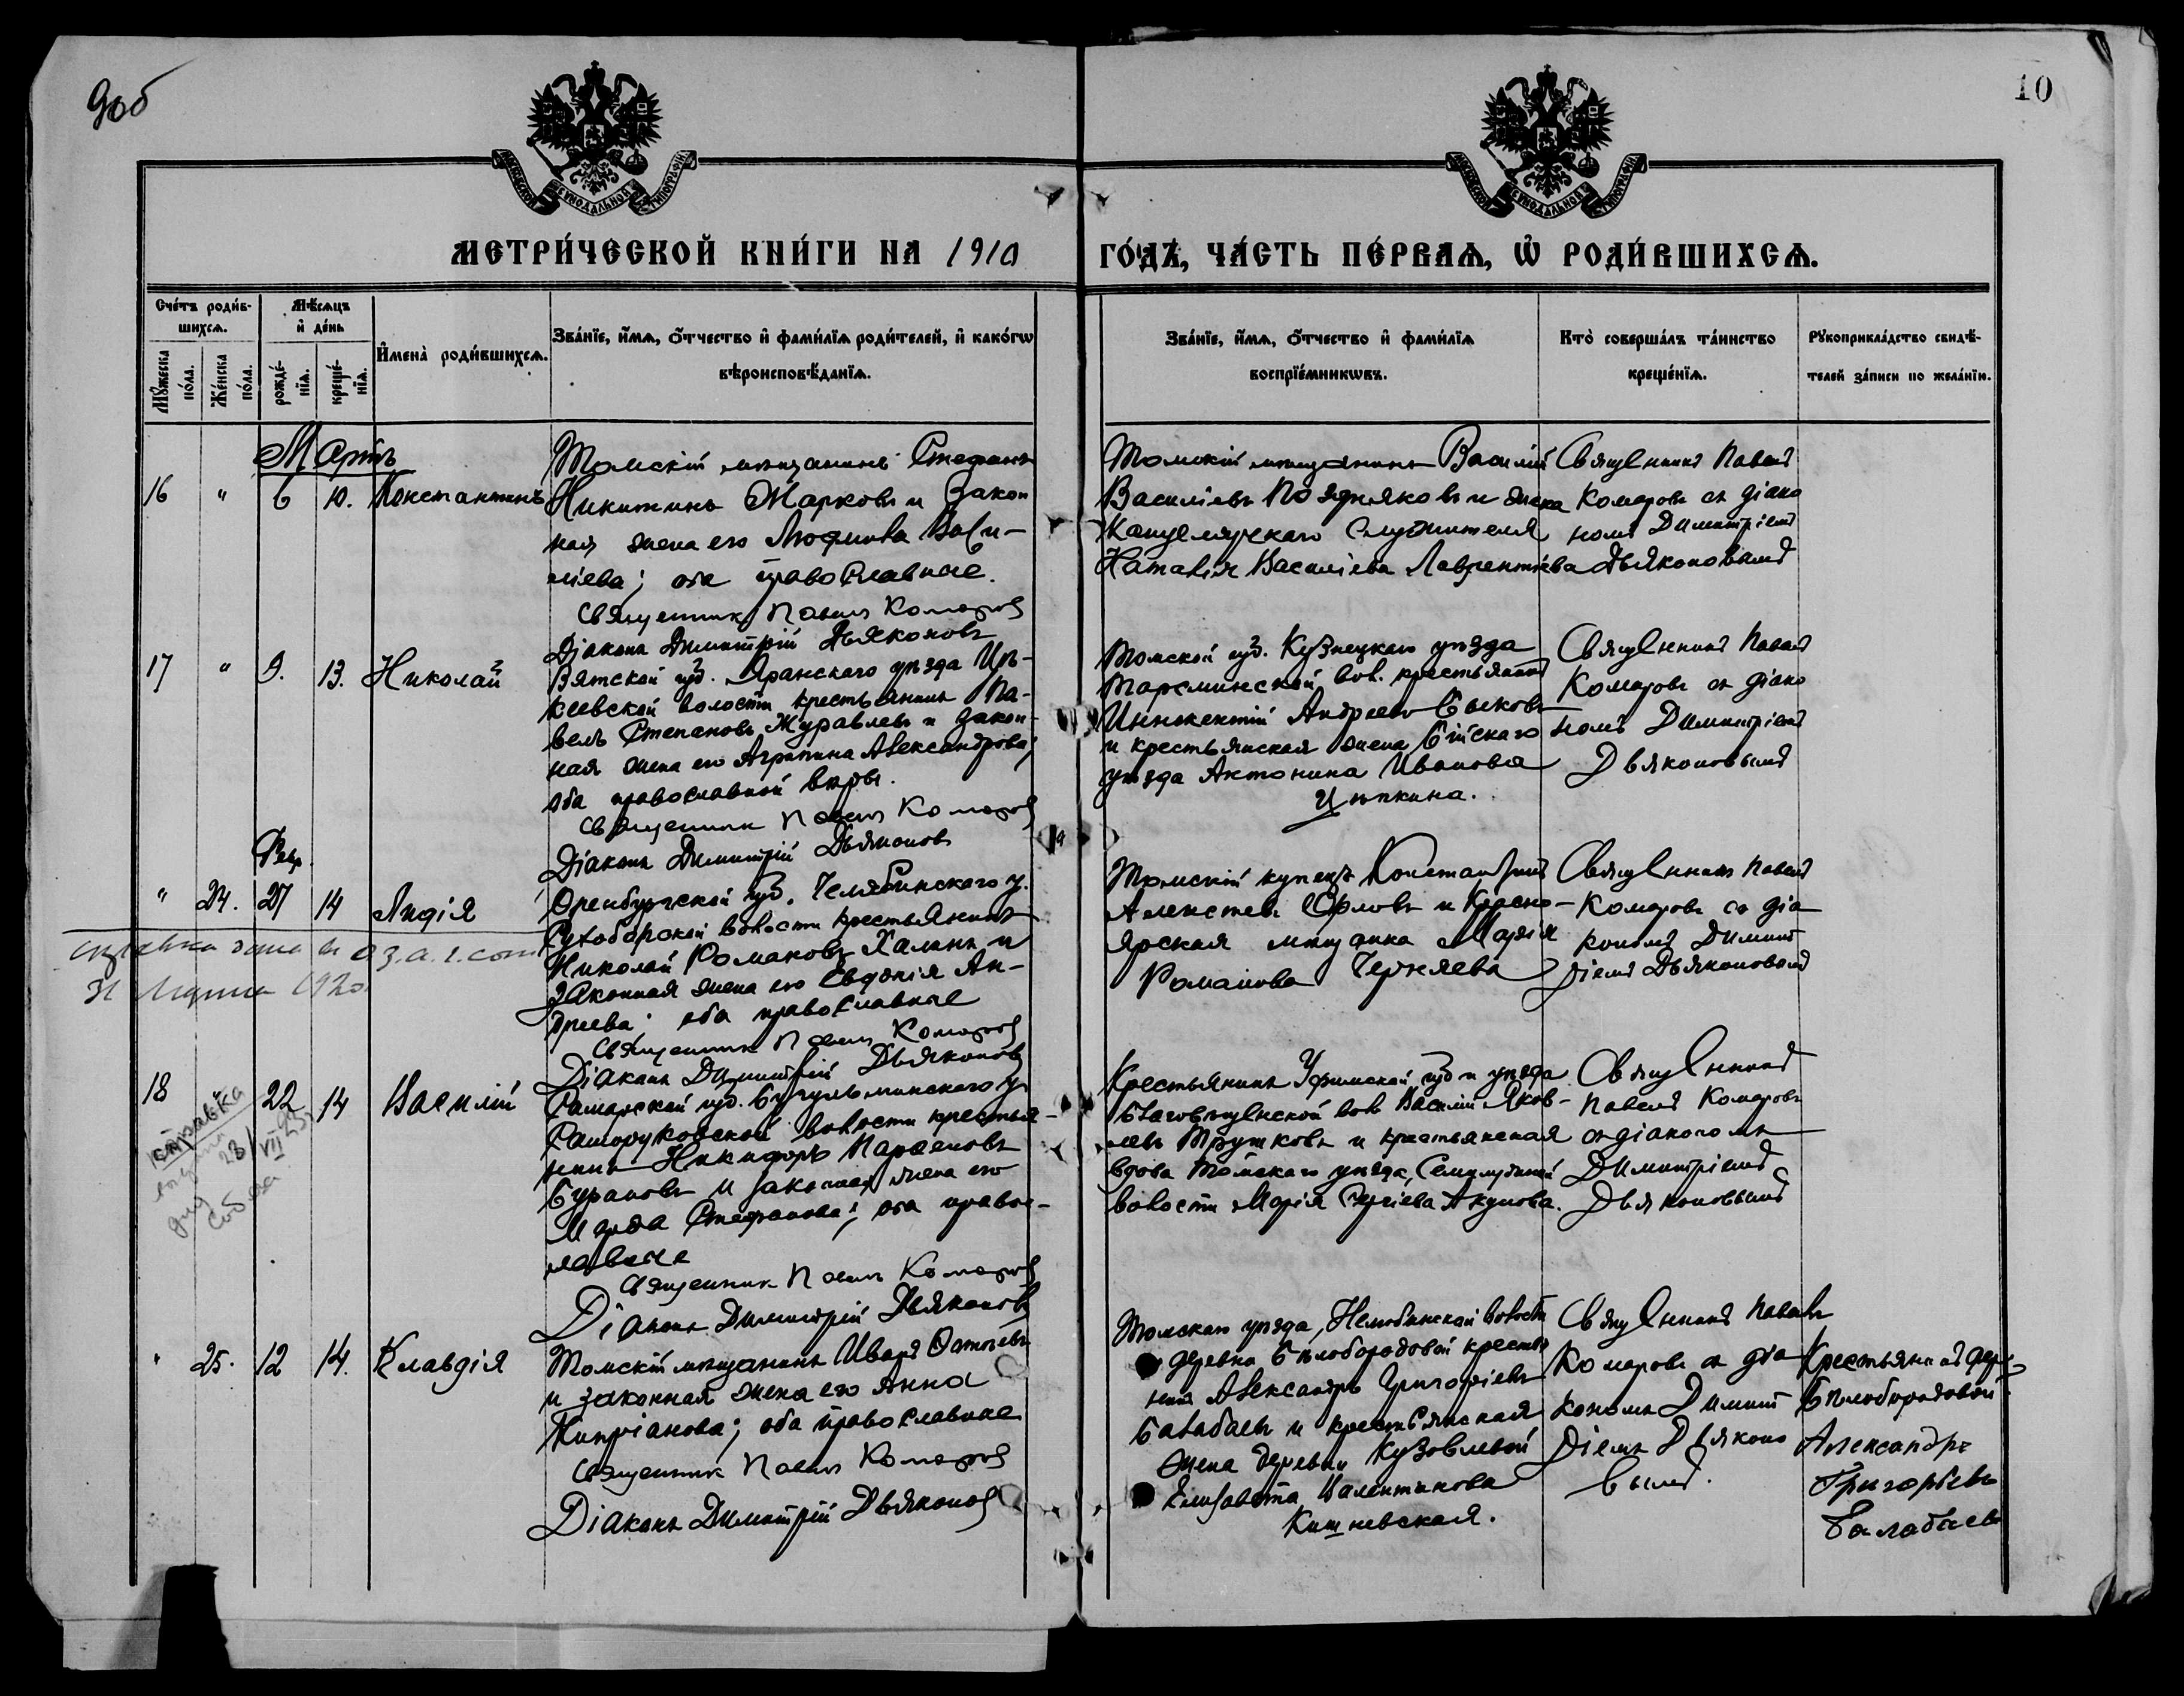 9об
10
МОСКОВСКОЙ СУНОДАЛЬНОЙ ТИПОГРАФІИ
МОСКОВСКОЙ СУНОДАЛЬНОЙ ТИПОГРАФІИ
МЕТРИ́ЧЕСКОЙ КНИ́ГИ НА 1910
ГО́ДЪ, ЧА́СТЬ ПЕ́РВАѦ, Ѡ҆ РОДИ́ВШИХСѦ.
Сче́тъ роди́в-
шихсѧ.
Мѣ́сѧцъ
и҆ де́нь
И҆мена̀ роди́вшихсѧ.
Зва́нїе, и҆́мѧ, ѻ҆́тчество и҆ фами́лїѧ роди́телей, и҆ како́гѡ
вѣроисповѣ́данїѧ.
Мꙋ́жеска
по́ла.
Же́нска
по́ла.
рожде́-
нїѧ.
креще́-
нїѧ.
Зва́нїе, и҆́мѧ, ѻ҆́тчество и҆ фами́лїѧ
воспрїе́мникѡвъ.
Кто̀ соверша́лъ та́инство
креще́нїѧ.
Рꙋкоприкла́дство свидѣ́-
телей за́писи по жела́нїю.
Мартъ
16 " 6 10. Константинъ
Томскій мѣщанинъ Стефанъ
Никитинъ Жарковъ и закон
ная жена его Васи-
ліева; оба православные.
Священникъ Павелъ Комаровъ
Діаконъ Димитрій Дьяконовъ
Томскій мѣщанинъ Василій
Васильевъ Поздняковъ и жена
Канцелярскаго Служителя
Наталія Васильева Лаврентьева
Священникъ Павелъ
Комаровъ съ діако
номъ Димитріемъ
Дьяконовымъ
17 " 9. 13. Николай
Вятской губ. Яранскаго уѣзда
кеевской волости крестьянинъ Па-
велъ Степановъ Журавлевъ и закон-
ная жена его Агрипина Александрова;
оба православной вѣры.
Священникъ Павелъ Комаровъ
Діаконъ Димитрій Дьяконовъ
Томской губ. Кузнецкаго уѣзда
Тарсминской вол. крестьянинъ
Иннокентій Андреевъ Быковъ
и крестьянская жена Бійскаго
уѣзда Антонина Иванова
Цыпкина.
Священникъ Павелъ
Комаровъ съ діако
номъ Димитріемъ
Дьяконовымъ
Февр.
" 24. 27 14 Лидія
Оренбургской губ. Челябинскаго у.
Сухоборской волости крестьянинъ
Николай Романовъ Халинъ и
законная жена его Евдокія Ан-
дреева; оба православные
Священникъ Павелъ Комаровъ
Діаконъ Димитрій Дьяконовъ
Томскій купецъ Константинъ
Алексѣевъ Орловъ и Красно-
ярская мѣщанка Марія
Романова Черняева
Священникъ Павелъ
Комаровъ съ діа
кономъ Димит
ріемъ Дьяконовымъ
справка дана
31 Марта 1920
18 22 14 Василій
справка
выдана
28/VII 25
Самарской губ. Бугульминскаго у.
волости крестья
нинъ Никифоръ Парфеновъ
Бурановъ и законная жена его
Марфа Стефанова; оба правос-
лавные
Священникъ Павелъ Комаровъ
Діаконъ Димитрій Дьяконовъ
Крестьянинъ Уфимской губ и уѣзда
Благовѣщенской вол Василій Яков-
левъ Трушковъ и крестьянская
вдова Томскаго уѣзда, Семилужной
волости Марія Сергіева Акулова.
Священникъ
Павелъ Комаровъ
съ діакономъ
Димитріемъ
Дьяконовымъ
" 25. 12 14. Клавдія
Томскій мѣщанинъ Иванъ
и законная жена его Анна
Кипріанова; оба православные
Священникъ Павелъ Комаровъ
Діаконъ Димитрій Дьяконовъ
Томскаго уѣзда, Нелюбинской волости
деревни Бѣлобородовой крестья
нинъ Александръ Григорьевъ
Балабаевъ и крестьянская
жена деревни Кузовлевой
Елизавета Валентинова
Кишневская.
Священникъ Павелъ
Комаровъ съ діа
кономъ Димит
ріемъ Дьяконо
вымъ.
Крестьянинъ дер.
Бѣлобородовой
Александръ
Григорьевъ
Балабаевъ